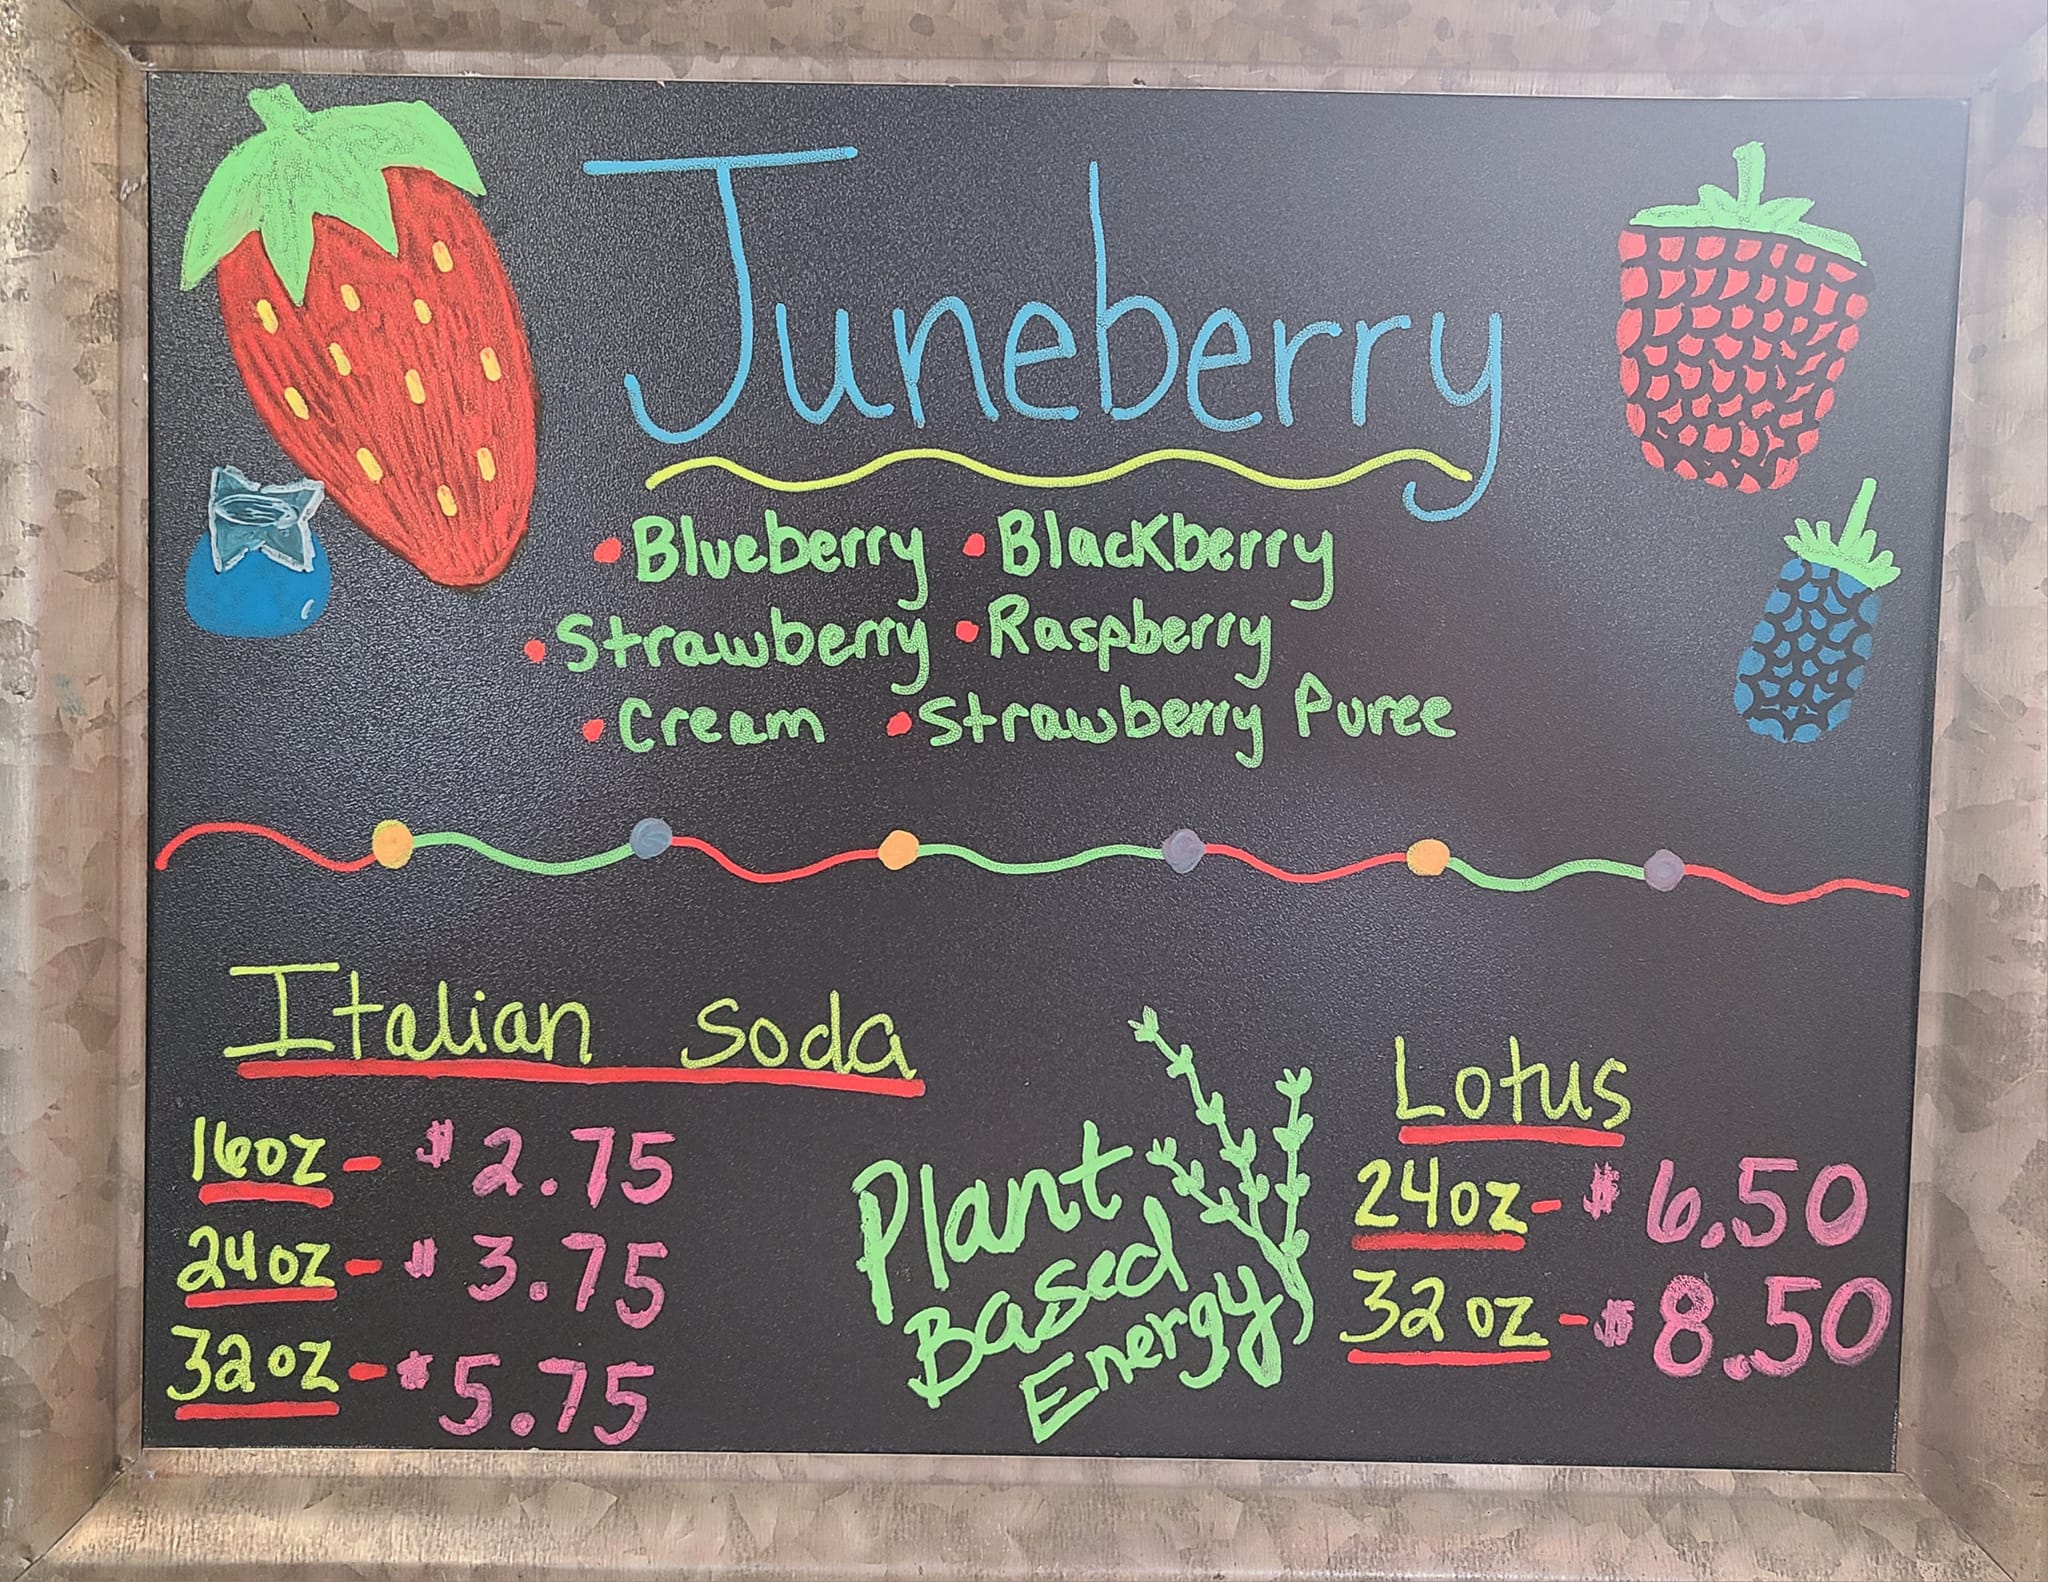 Juneberry
• Blueberry • Blackberry
• Strawberry • Raspberry
• Cream • Strawberry Puree
Italian Soda
16oz - $2.75
24oz - $3.75
32oz - $5.75
Plant
Based
Energy
Lotus
24oz - $6.50
32oz - $8.50